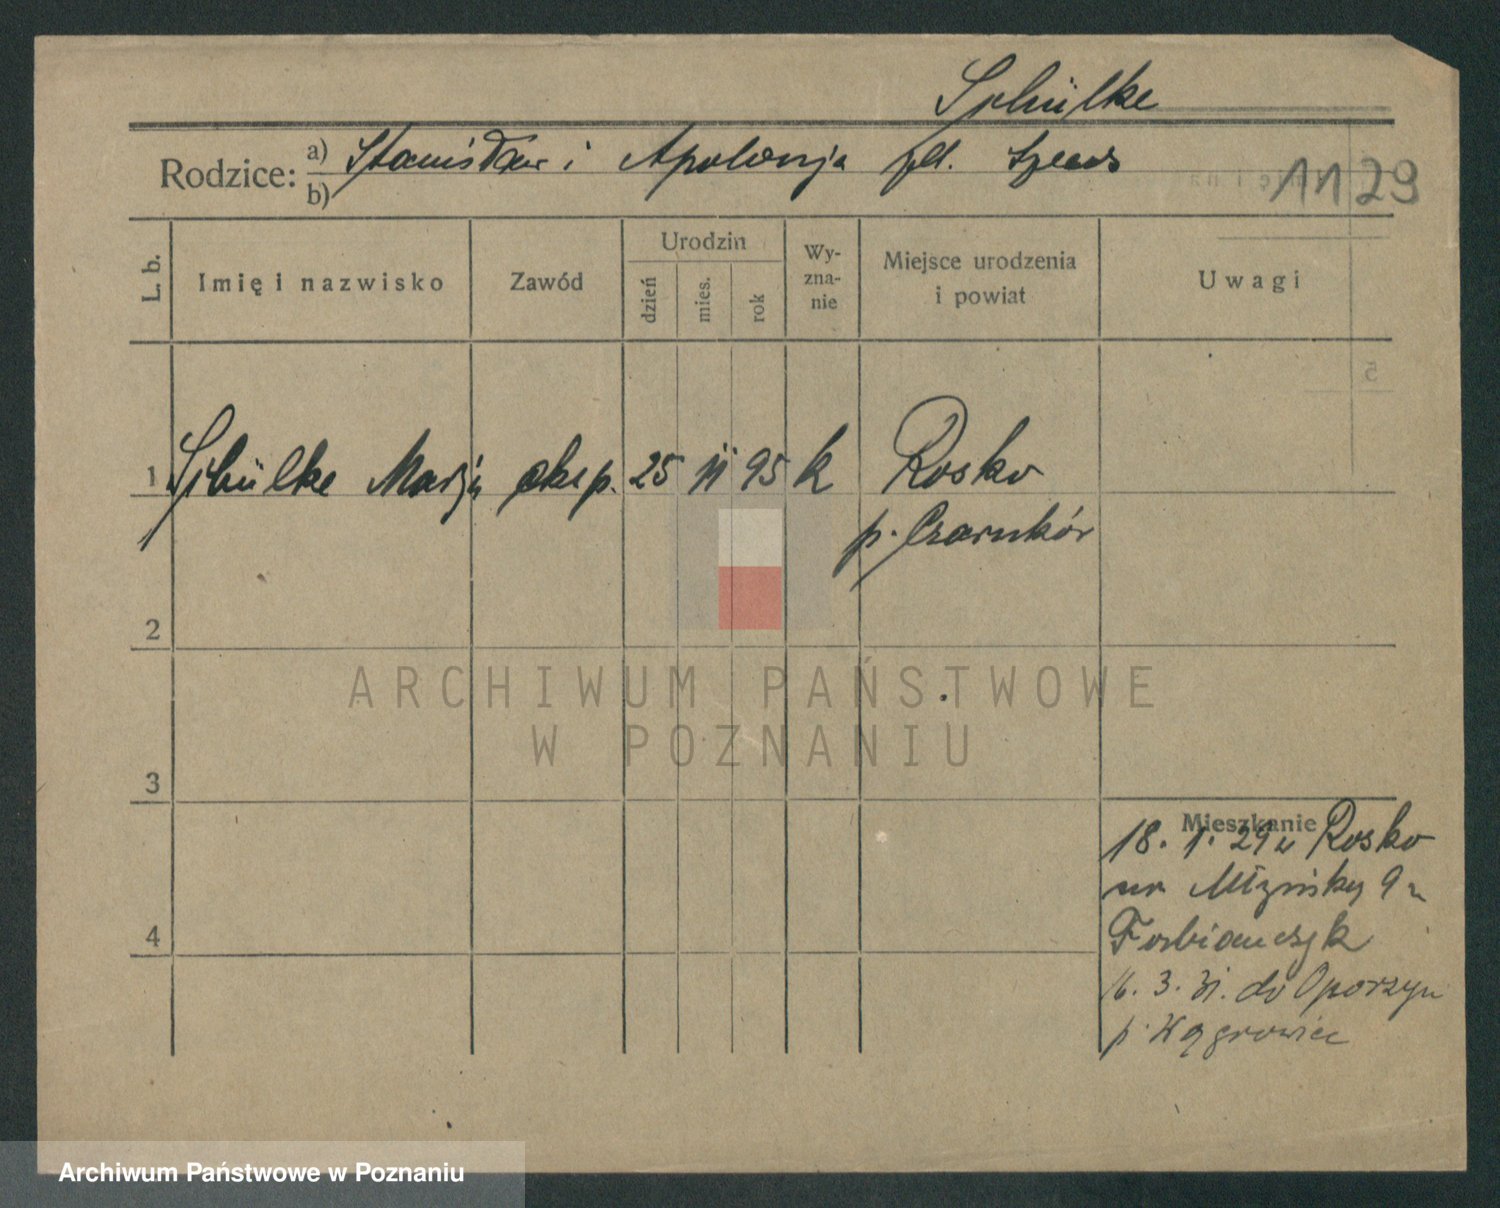 Schülke
Rodzice: a) Stanisław i Apolonja
b)
1129
L. b. Imię i nazwisko Zawód Urodzin dzień mies. rok Wy-zna-nie Miejsce urodzenia i powiat Uwagi
5
1 Schülke Marja eksp. 25 11 95 k Rosko
p. Czarnków
2
3
4
Mieszkanie
18. 1. 29 z Rosko
9
Fabianczyk
16. 3. 31. do Oporzyn
p. Wągrowiec
ARCHIWUM PAŃSTWOWE
W POZNANIU
Archiwum Państwowe w Poznaniu